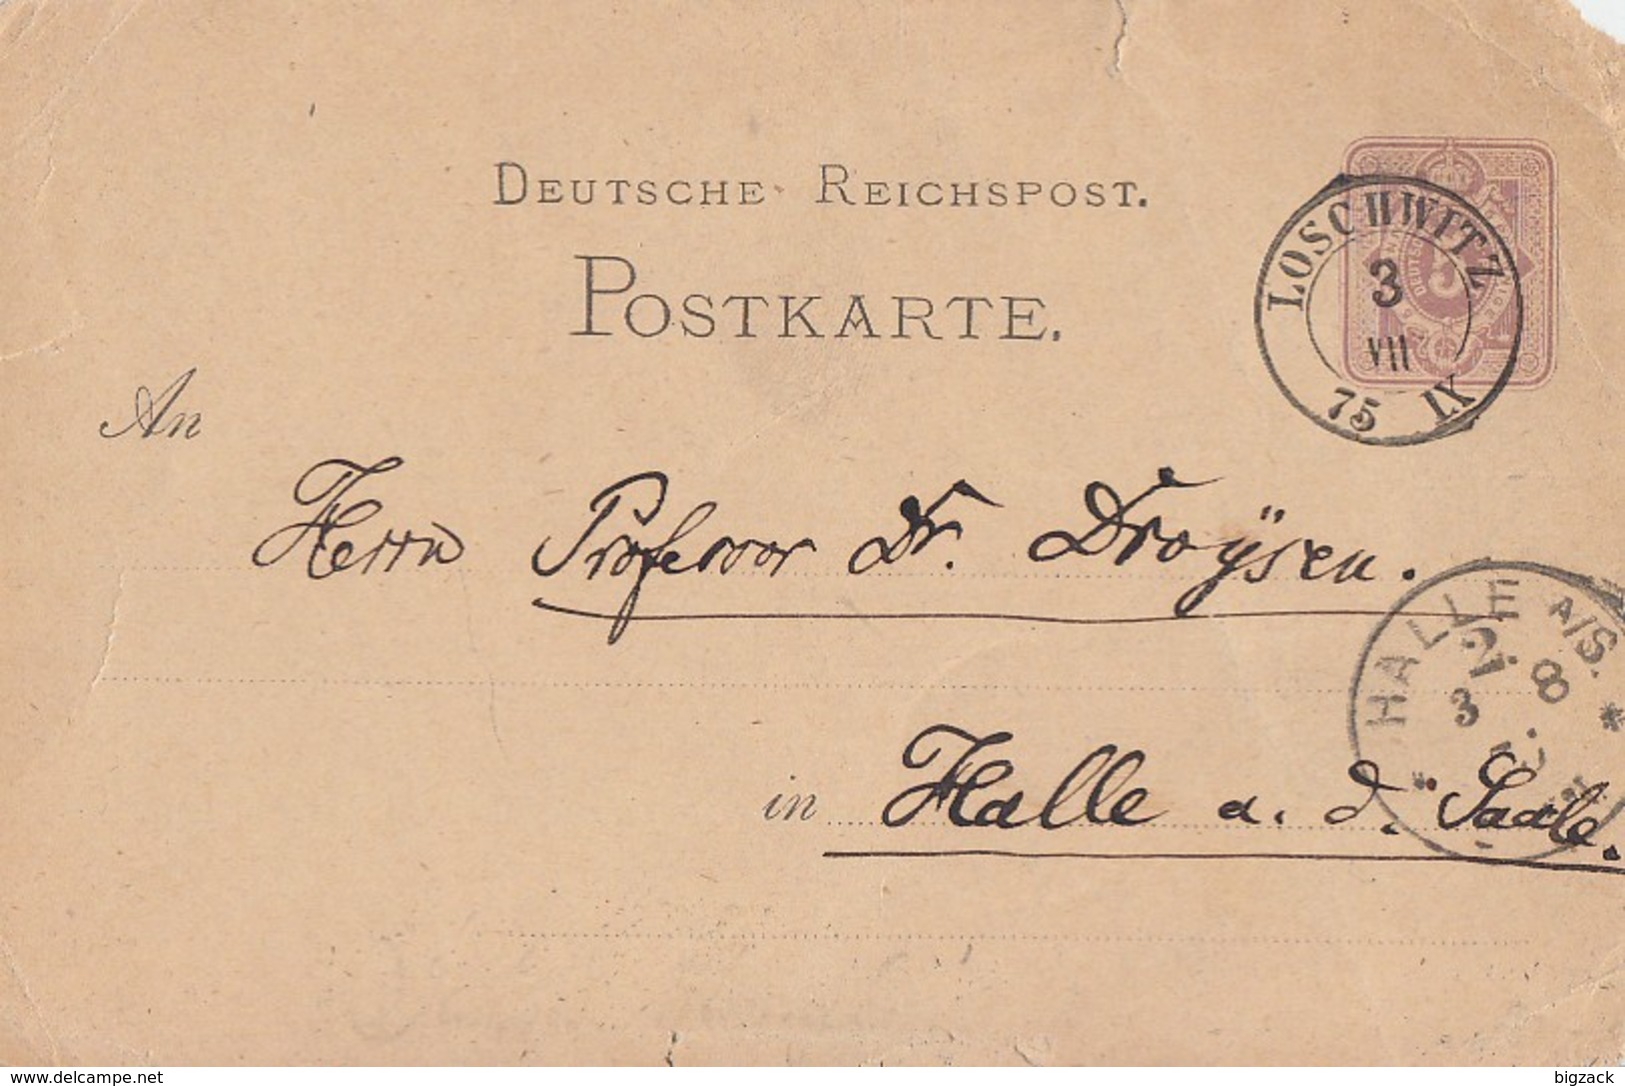 DEUTSCHE REICHSPOST.
POSTKARTE.
LOSCHWITZ
3
VII
75 IX
An
Herrn Professor Dr. Droÿsen.
HALLE A/S.
2. 8
3
in Halle a. d. Saale.
www.delcampe.net
bigzack